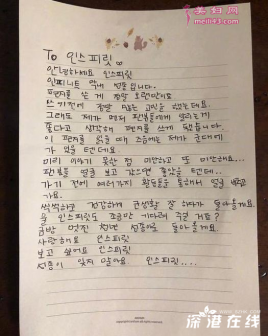 美妇网
meif43.com
To 인스피릿
안녕하세요 인스피릿
인피니트 막내 성종입니다.
편지를 쓰는 게 정말 오랜만이네요
쓰기전에 정말 많은 고민을 했는데요
그래도 제가 먼저 팬분들에게 알리는게
좋다고 생각해 편지를 쓰게 됐습니다
이 편지를 읽을 때 즈음에는 제가 군대에
가 있을 텐데요
미리 이야기 못한 점 미안하고 또 미안해요...
팬분들 얼굴 보고 갔으면 좋았을 텐데..
가기 전에 여러가지 활동들을 통해서 얼굴
가요.
씩씩하고 건강하게 군생활 잘 하다가 돌아올게요
울 인스피릿도 조금만 기다려 주실 거죠?
금방 멋진 청년 성종이로 돌아올게요
사랑해요 인스피릿
보고 싶어요 인스피릿
성종이 잊지 말아요 인스피릿....
深港在线